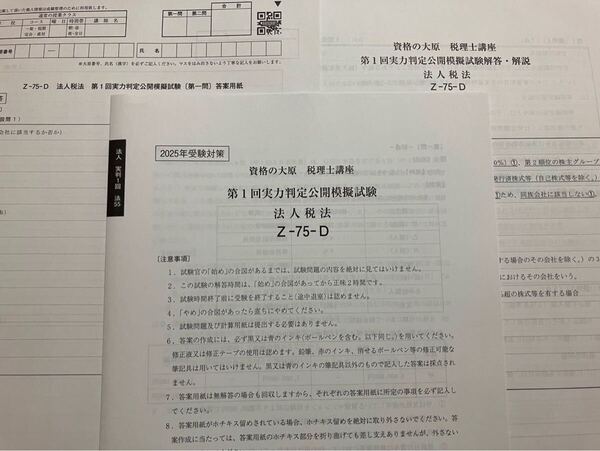 通常の授業クラス
コース
曜日
時間帯
講師名
第一問
第二問
合計
氏名
Z-75-D 法人税法 第1回実力判定公開模擬試験〔第一問〕答案用紙
資格の大原 税理士講座
第1回実力判定公開模擬試験解答・解説
法人税法
Z-75-D
法人 実判1回 法55
2025年受験対策
資格の大原 税理士講座
第1回実力判定公開模擬試験
法人税法
Z-75-D
〔注意事項〕
1.試験官の「始め」の合図があるまでは、試験問題の内容を絶対に見てはいけません。
2.この試験の解答時間は、「始め」の合図があってから正味2時間です。
3.試験時間終了前に受験を終了すること(途中退室)は認めません。
4.「やめ」の合図があったら直ちにやめてください。
5.試験問題及び計算用紙は提出する必要はありません。
6.答案の作成には、必ず黒又は青のインキ(ボールペンを含む。以下同じ。)を用いてください。
修正液又は修正テープの使用は認めます。鉛筆、赤のインキ、消せるボールペン等の修正可能な
筆記具は用いてはいけません。黒又は青のインキの筆記具以外のもので記入した答案は採点され
ません。
7.答案用紙は無解答の場合も回収しますから、それぞれの答案用紙に所定の事項を必ず記入し
てください。
8.答案用紙がホチキス留めされている場合、ホチキスを絶対に取り外さないでください。答
案作成に当たっては、答案用紙のホチキス部分を折り曲げても差し支えありませんが、外さない
①、第2順位の株主グループ
発行済株式等(自己株式等を除く。)
ため、同族会社に該当しない①
する場合のその会社を除く。)の3
におけるその会社をいう。
超の株式等を有する場合